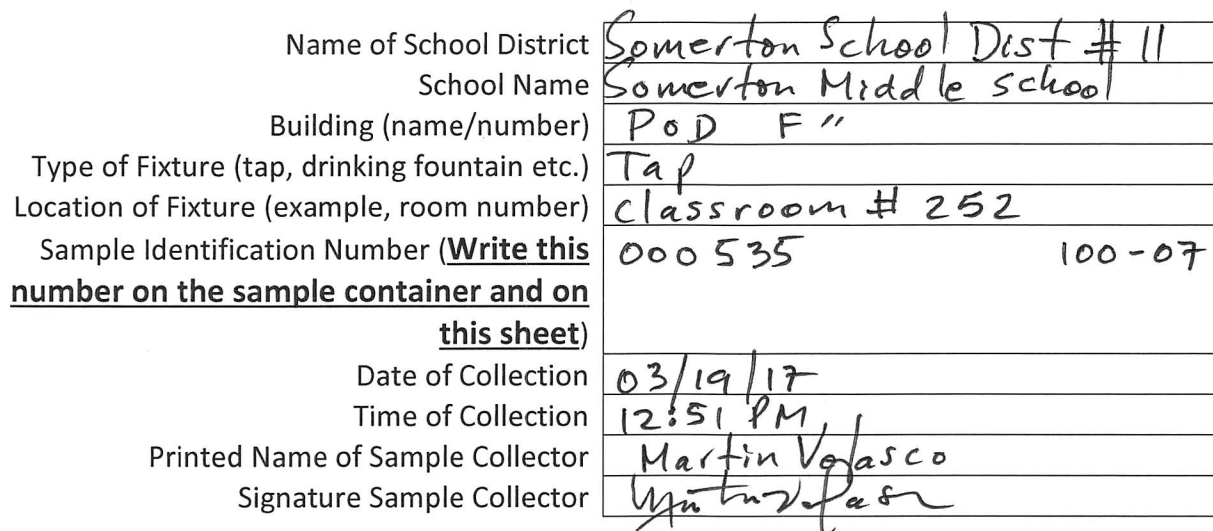 Name of School District Somerton School Dist # 11
School Name Somerton Middle school
Building (name/number) PoD F "
Type of Fixture (tap, drinking fountain etc.) Tap
Location of Fixture (example, room number) classroom # 252
Sample Identification Number (Write this 000535 100-07
number on the sample container and on
this sheet)
Date of Collection 03/19/17
Time of Collection 12:51 PM
Printed Name of Sample Collector Martin Velasco
Signature Sample Collector